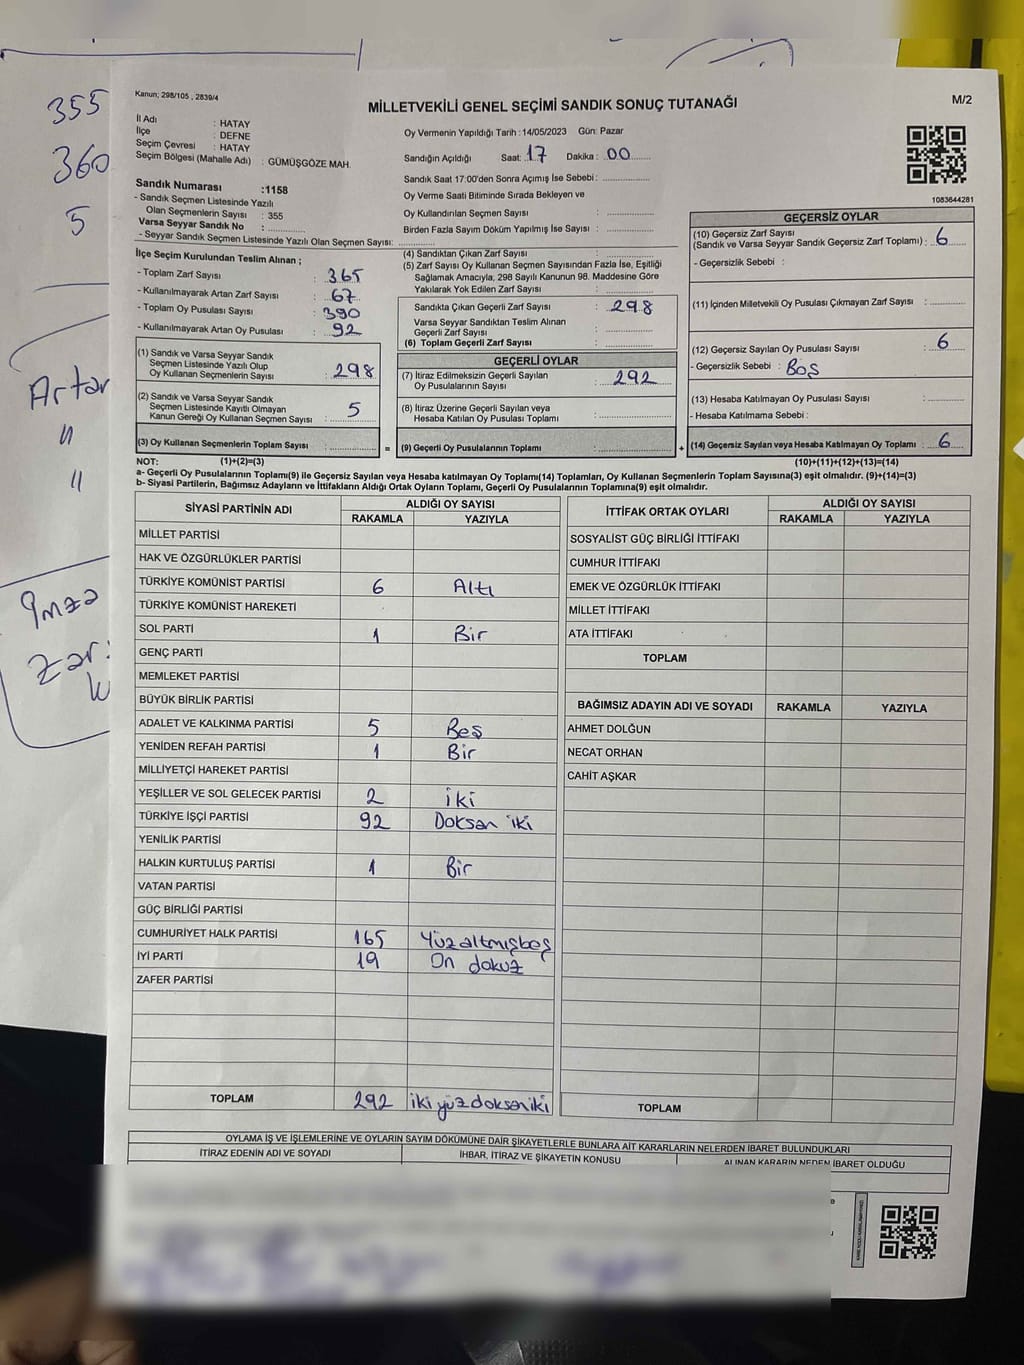 355
360
5
Artan
"
"
İmza
Kanun; 298/105 , 2839/4
MİLLETVEKİLİ GENEL SEÇİMİ SANDIK SONUÇ TUTANAĞI
M/2
İl Adı : HATAY
İlçe : DEFNE
Seçim Çevresi : HATAY
Seçim Bölgesi (Mahalle Adı) : GÜMÜŞGÖZE MAH.
Oy Vermenin Yapıldığı Tarih : 14/05/2023 Gün: Pazar
Sandığın Açıldığı Saat: 17 Dakika : 00
Sandık Saat 17:00'den Sonra Açımış İse Sebebi :
Oy Verme Saati Bitiminde Sırada Bekleyen ve
Oy Kullandırılan Seçmen Sayısı :
Birden Fazla Sayım Döküm Yapılmış İse Sayısı :
1083644281
Sandık Numarası :1158
- Sandık Seçmen Listesinde Yazılı
Olan Seçmenlerin Sayısı : 355
Varsa Seyyar Sandık No :
- Seyyar Sandık Seçmen Listesinde Yazılı Olan Seçmen Sayısı:
İlçe Seçim Kurulundan Teslim Alınan ;
- Toplam Zarf Sayısı : 365
- Kullanılmayarak Artan Zarf Sayısı : 67
- Toplam Oy Pusulası Sayısı : 390
- Kullanılmayarak Artan Oy Pusulası : 92
(1) Sandık ve Varsa Seyyar Sandık
Seçmen Listesinde Yazılı Olup
Oy Kullanan Seçmenlerin Sayısı : 298
(2) Sandık ve Varsa Seyyar Sandık
Seçmen Listesinde Kayıtlı Olmayan
Kanun Gereği Oy Kullanan Seçmen Sayısı : 5
(3) Oy Kullanan Seçmenlerin Toplam Sayısı :
(4) Sandıktan Çıkan Zarf Sayısı :
(5) Zarf Sayısı Oy Kullanan Seçmen Sayısından Fazla İse, Eşitliği
Sağlamak Amacıyla, 298 Sayılı Kanunun 98. Maddesine Göre
Yakılarak Yok Edilen Zarf Sayısı :
Sandıkta Çıkan Geçerli Zarf Sayısı : 298
Varsa Seyyar Sandıktan Teslim Alınan
Geçerli Zarf Sayısı :
(6) Toplam Geçerli Zarf Sayısı :
GEÇERLİ OYLAR
(7) İtiraz Edilmeksizin Geçerli Sayılan
Oy Pusulalarının Sayısı : 292
(8) İtiraz Üzerine Geçerli Sayılan veya
Hesaba Katılan Oy Pusulası Toplamı :
= (9) Geçerli Oy Pusulalarının Toplamı : +
GEÇERSİZ OYLAR
(10) Geçersiz Zarf Sayısı
(Sandık ve Varsa Seyyar Sandık Geçersiz Zarf Toplamı) : 6
- Geçersizlik Sebebi :
(11) İçinden Milletvekili Oy Pusulası Çıkmayan Zarf Sayısı :
(12) Geçersiz Sayılan Oy Pusulası Sayısı : 6
- Geçersizlik Sebebi : Boş
(13) Hesaba Katılmayan Oy Pusulası Sayısı :
- Hesaba Katılmama Sebebi :
(14) Geçersiz Sayılan veya Hesaba Katılmayan Oy Toplamı : 6
NOT: (1)+(2)=(3) (10)+(11)+(12)+(13)=(14)
a- Geçerli Oy Pusulalarının Toplamı(9) ile Geçersiz Sayılan veya Hesaba katılmayan Oy Toplamı(14) Toplamları, Oy Kullanan Seçmenlerin Toplam Sayısına(3) eşit olmalıdır. (9)+(14)=(3)
b- Siyasi Partilerin, Bağımsız Adayların ve İttifakların Aldığı Ortak Oyların Toplamı, Geçerli Oy Pusulalarının Toplamına(9) eşit olmalıdır.
SİYASİ PARTİNİN ADI ALDIĞI OY SAYISI
RAKAMLA YAZIYLA
MİLLET PARTİSİ
HAK VE ÖZGÜRLÜKLER PARTİSİ
TÜRKİYE KOMÜNİST PARTİSİ 6 Altı
TÜRKİYE KOMÜNİST HAREKETİ
SOL PARTİ 1 Bir
GENÇ PARTİ
MEMLEKET PARTİSİ
BÜYÜK BİRLİK PARTİSİ
ADALET VE KALKINMA PARTİSİ 5 Beş
YENİDEN REFAH PARTİSİ 1 Bir
MİLLİYETÇİ HAREKET PARTİSİ
YEŞİLLER VE SOL GELECEK PARTİSİ 2 iki
TÜRKİYE İŞÇİ PARTİSİ 92 Doksan iki
YENİLİK PARTİSİ
HALKIN KURTULUŞ PARTİSİ 1 Bir
VATAN PARTİSİ
GÜÇ BİRLİĞİ PARTİSİ
CUMHURİYET HALK PARTİSİ 165 Yüzaltmışbeş
İYİ PARTİ 19 On dokuz
ZAFER PARTİSİ
TOPLAM 292 iki yüz doksan iki
İTTİFAK ORTAK OYLARI ALDIĞI OY SAYISI
RAKAMLA YAZIYLA
SOSYALİST GÜÇ BİRLİĞİ İTTİFAKI
CUMHUR İTTİFAKI
EMEK VE ÖZGÜRLÜK İTTİFAKI
MİLLET İTTİFAKI
ATA İTTİFAKI
TOPLAM
BAĞIMSIZ ADAYIN ADI VE SOYADI RAKAMLA YAZIYLA
AHMET DOLĞUN
NECAT ORHAN
CAHİT AŞKAR
TOPLAM
OYLAMA İŞ VE İŞLEMLERİNE VE OYLARIN SAYIM DÖKÜMÜNE DAİR ŞİKAYETLERLE BUNLARA AİT KARARLARIN NELERDEN İBARET BULUNDUKLARI
İTİRAZ EDENİN ADI VE SOYADI İHBAR, İTİRAZ VE ŞİKAYETİN KONUSU ALINAN KARARIN NEDEN İBARET OLDUĞU